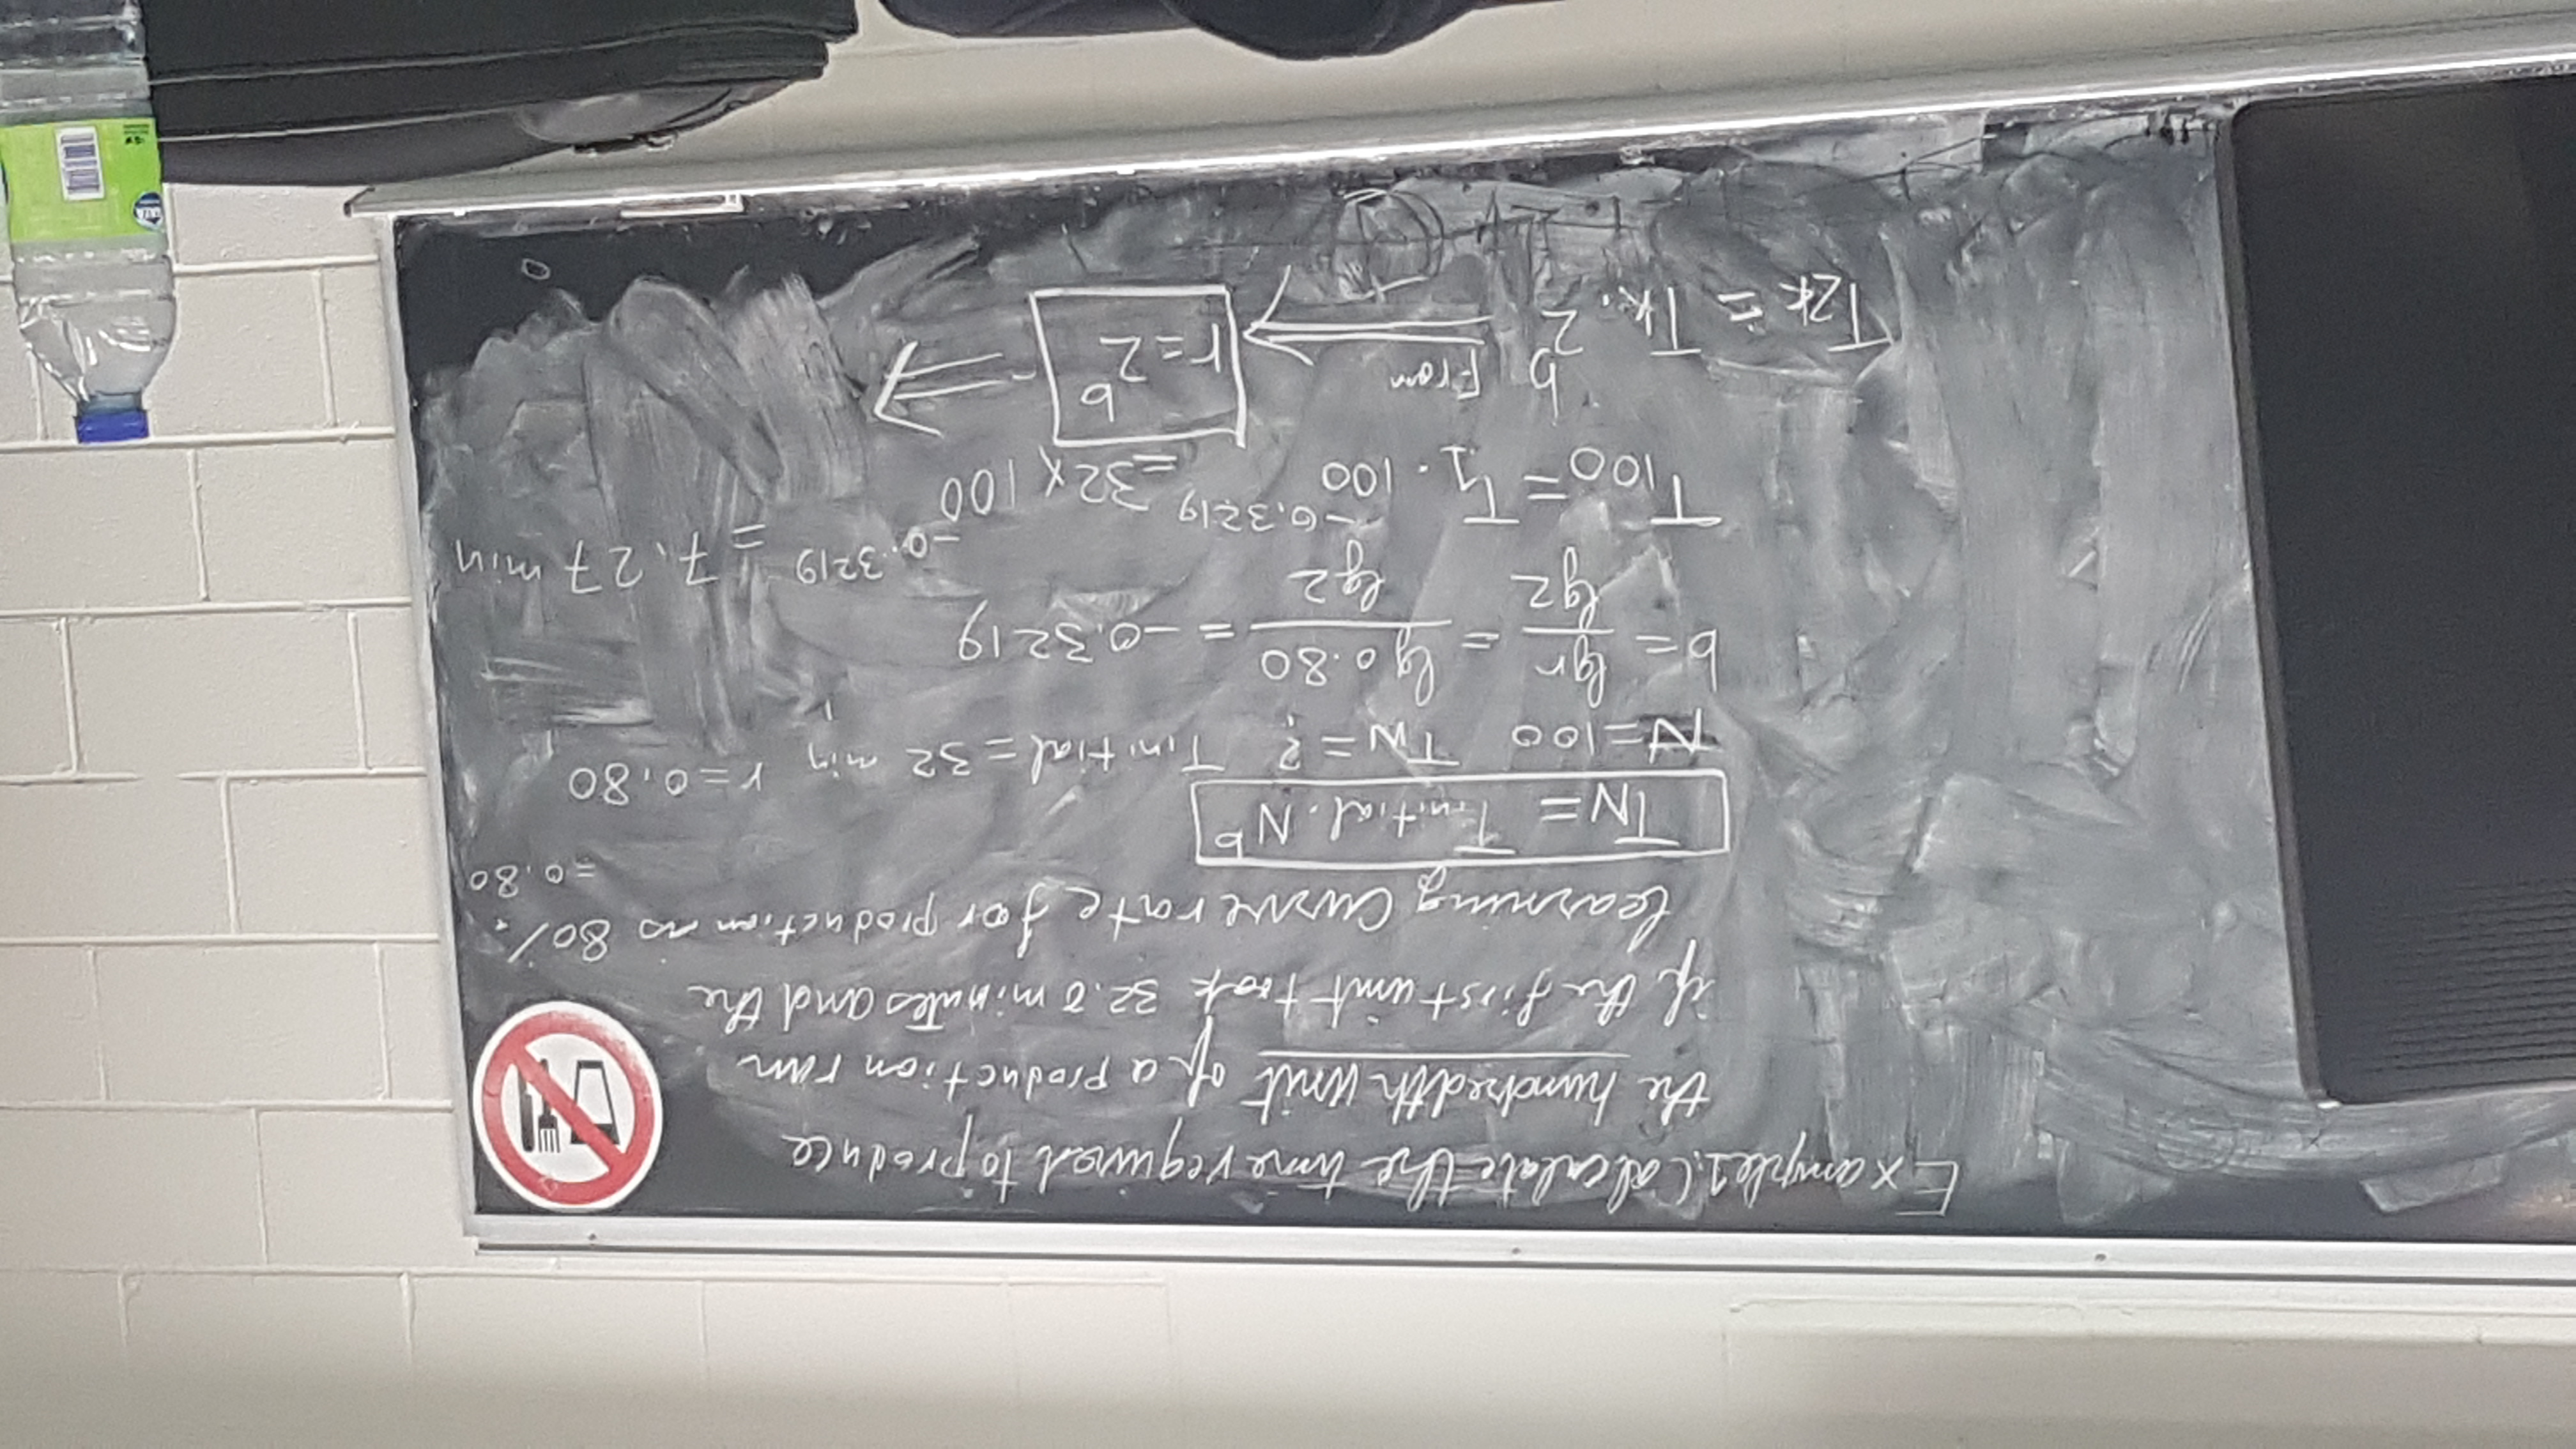 Example1. Calculate the time required to produce
the hundredth unit of a production run
if the first unit took 32.0 minutes and the
learning curve rate for production is 80%.
=0.80
TN = Tinitial . N^b
N=100 TN=? Tinitial = 32 min r=0.80
b = lgr/lg2 = lg0.80/lg2 = -0.3219
T100 = T1 . 100^-0.3219 = 32 x 100^-0.3219 = 7.27 min
T2k = Tk . 2^b From ⟹ r=2^b ⟹